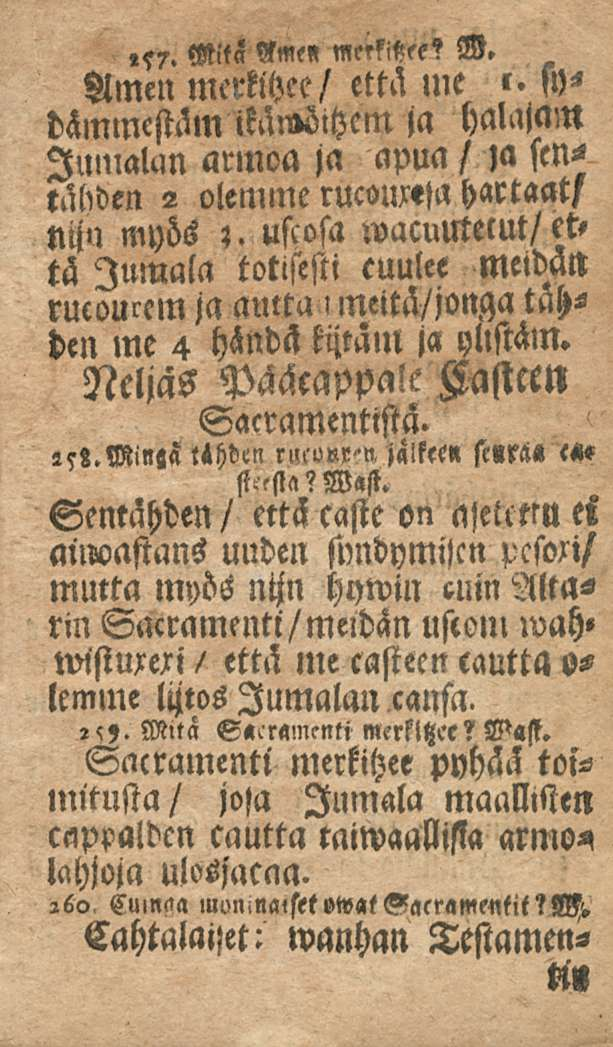 257. Mitä Amen merkitzee? W.
Amen merkitzee/ että me 1. sy⸗
dämmestäm ikäwöitzem ja halajam
Jumalan armoa ja apua/ ja sen⸗
tähden 2 olemme rucouxesa hartaat/
nijn myös 3. uscosa wacuutetut/ et⸗
tä Jumala totisesti cuulee meidän
rucourem ja autta meitä/jonga täh⸗
den me 4 händä kijtäm ja ylistäm.
Neljäs Pääcappale Casteen
Sacramentistä.
258. Mingä tähden rucouxen jälkeen seuraa cas⸗
teesta? Wast.
Sentähden/ että caste on asetettu ei
ainoastans uuden syndymisen pesoxi/
mutta myös nijn hywin cuin Alta⸗
rin Sacramenti/meidän uscom wah⸗
wistuxexi/ että me casteen cautta o⸗
lemme lijtos Jumalan cansa.
259. Mitä Sacramenti merkitzee? Wast.
Sacramenti merkitzee pyhää toi⸗
mitusta/ josa Jumala maallisten
cappalden cautta taiwaallisia armo⸗
lahjoja ulosjacaa.
260. Cuinga moninaiset owat Sacramentit? W.
Cahtalaiset: wanhan Testamen⸗
tin